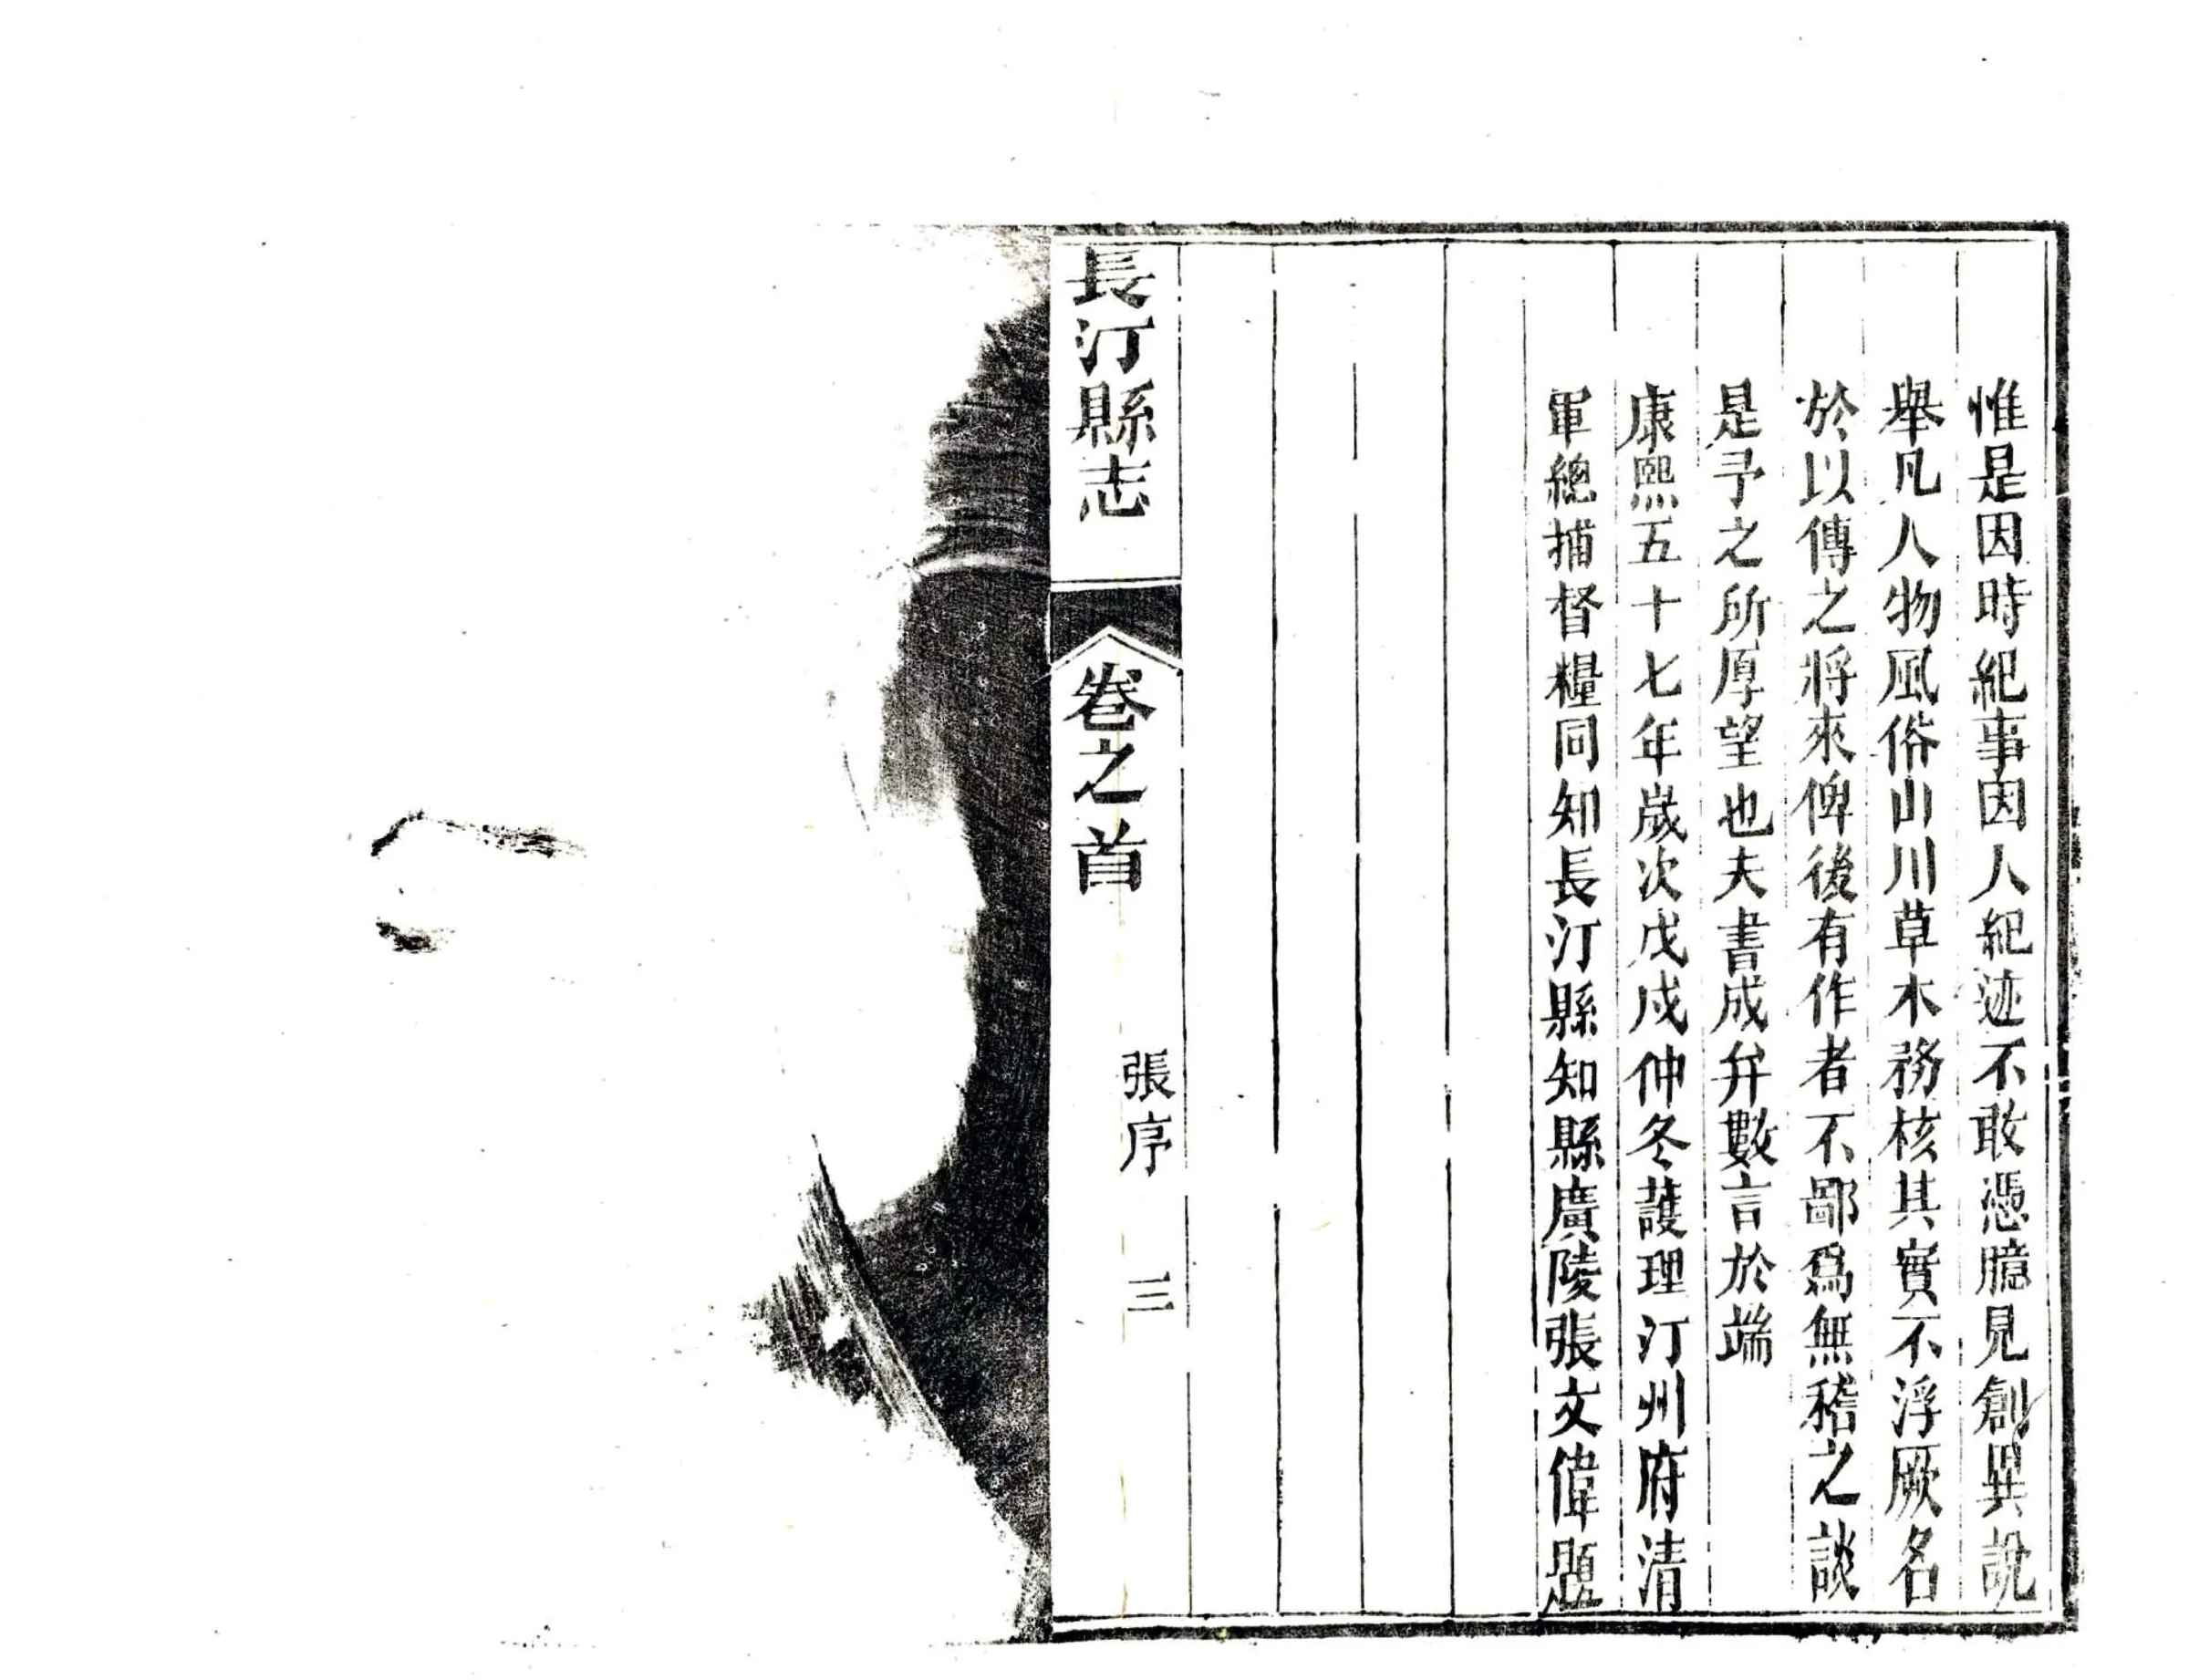 惟是因時紀事因人紀迹不敢憑臆見創異說
舉凡人物風俗山川草木務核其實不浮厥名
於以傳之將來俾後有作者不鄙爲無稽之談
是予之所厚望也夫書成弁數言於端
康熙五十七年歲次戊戌仲冬護理汀州府清
軍總捕督糧同知長汀縣知縣廣陵張文偉題
長汀縣志
卷之首
張序
三